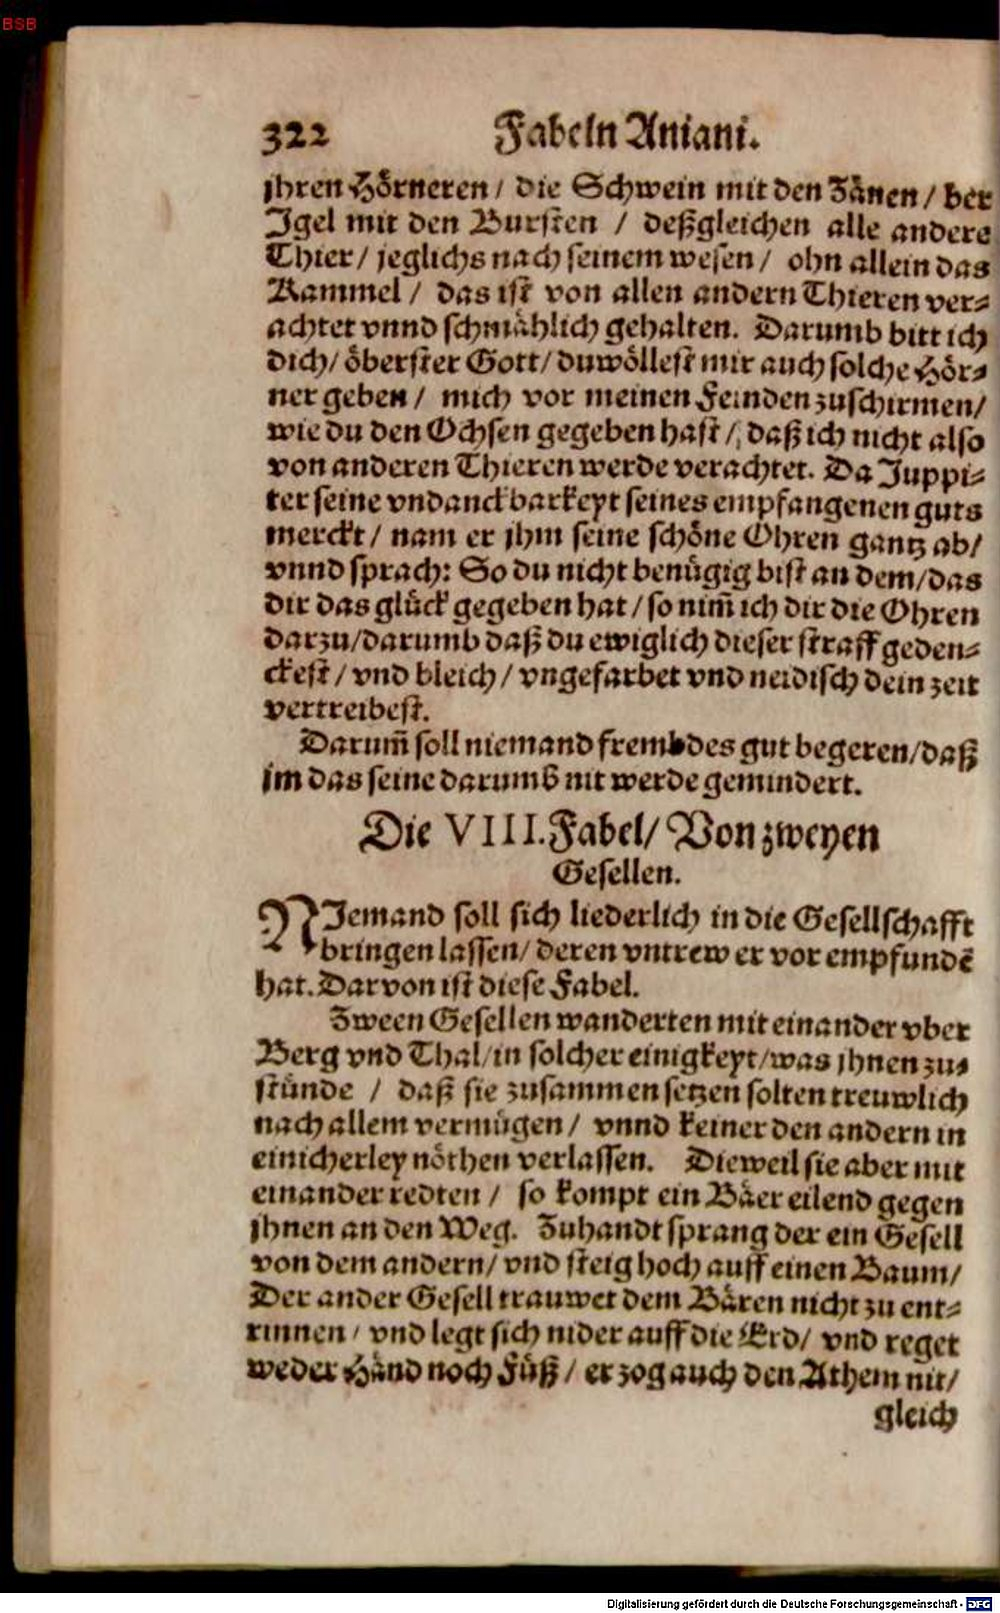 BSB
322 Fabeln Aniani.
jhren Hörneren / die Schwein mit den Zänen / der
Igel mit den Bursten / deßgleichen alle andere
Thier / jeglichs nach seinem wesen / ohn allein das
Kammel / das ist von allen andern Thieren ver⸗
achtet vnnd schmählich gehalten. Darumb bitt ich
dich / öberster Gott / du wöllest mir auch solche Hör⸗
ner geben / mich vor meinen Feinden zuschirmen /
wie du den Ochsen gegeben hast / daß ich nicht also
von anderen Thieren werde verachtet. Da Juppi⸗
ter seine vndanckbarkeyt seines empfangenen guts
merckt / nam er jhm seine schöne Ohren gantz ab /
vnnd sprach: So du nicht benügig bist an dem / das
dir das glück gegeben hat / so nim̃ ich dir die Ohren
darzu / darumb daß du ewiglich dieser straff geden⸗
ckest / vnd bleich / vngefarbet vnd neidisch dein zeit
vertreibest.
Darum̃ soll niemand frembdes gut begeren / daß
jm das seine darumb nit werde gemindert.
Die VIII. Fabel / Von zweyen
Gesellen.
NJemand soll sich liederlich in die Gesellschafft
bringen lassen / deren vntrew er vor empfundẽ
hat. Darvon ist diese Fabel.
Zween Gesellen wanderten mit einander vber
Berg vnd Thal / in solcher einigkeyt / was jhnen zu⸗
stünde / daß sie zusammen setzen solten treuwlich
nach allem vermügen / vnnd keiner den andern in
einicherley nöthen verlassen. Dieweil sie aber mit
einander redten / so kompt ein Bäer eilend gegen
jhnen an den Weg. Zuhandt sprang der ein Gesell
von dem andern / vnd steig hoch auff einen Baum /
Der ander Gesell trauwet dem Bären nicht zu ent⸗
rinnen / vnd legt sich nider auff die Erd / vnd reget
weder Händ noch Füß / er zog auch den Athem nit /
gleich
Digitalisierung gefördert durch die Deutsche Forschungsgemeinschaft - DFG